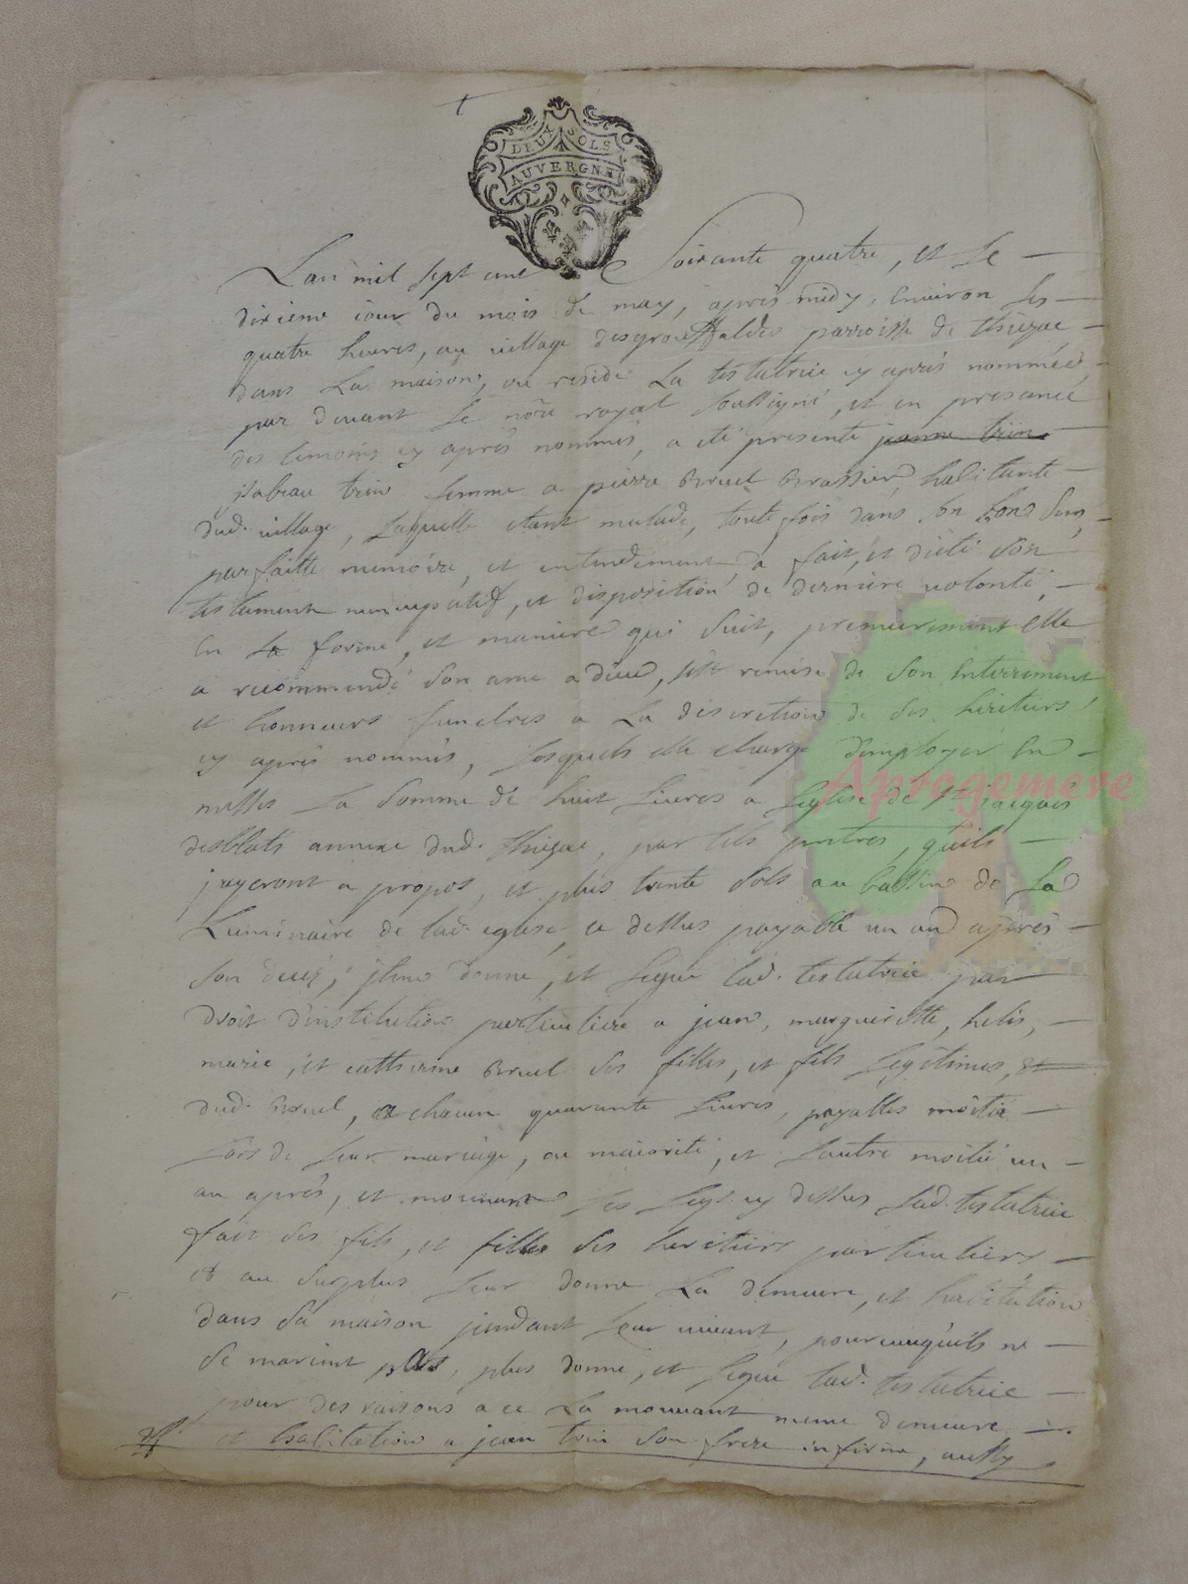 DEUX SOLS
AUVERGNE
Lan mil sept cent Soixante quatre, et le
dixieme iour du mois de may, apres midy, Environ les
quatre heures, au village parroisse de thiezac
dans la maison, ou reside la testatrice cy après nommée,
par devant le nore royal soussigné, et en presance
des temoins cy après nommés, a été presente jeanne trin
isabeau trin femme a pierre Bruel Brassier, habitante
dud. village, laquelle etant malade, toute fois dans son bons sens,
parfaitte memoire, et entendement, a fait, et dicté son
testament noncupatif, et disposition de derniere volonté,
En la forme, et maniere qui suit, premierement elle
a recommendé son ame a dieu, s'est remise de son Enterrement
et honneurs funebres a la discretion de ses héritiers
cy après nommés, lesquels elle charge demployer En
messes la somme de huit livres a leglise de St jacques
desblats annexe dud. thiezac, par tels pretres, quils
jugeront a propos, et plus trente sols au bassin de la
Luminaire de lad. eglise, ce dessus payable un an après
son deces, donne, et legue lad. testatrice par
droit dinstitution particuliere a jean, marguiritte, helis,
marie, et catherine Bruel ses filles, et fils legitimes, et
dud. Bruel, a chacun quarante livres, payables moitié
lors de leur mariage, ou maiorité, et lautre moitié un
an après, et mouienant les legs cy dessus lad. testatrice
fait ses fils, et filles ses heritiers particuliers
et au surplus leur donne la demeure, et habitation
dans sa maison pendant leur vivant, pourveuquils ne
se marient pas, plus donne, et legue lad. testatrice
pour des raisons a ce la mouvant meme demeure,
et habitation a jean trin son frere infirme, aussy
Aprogemere